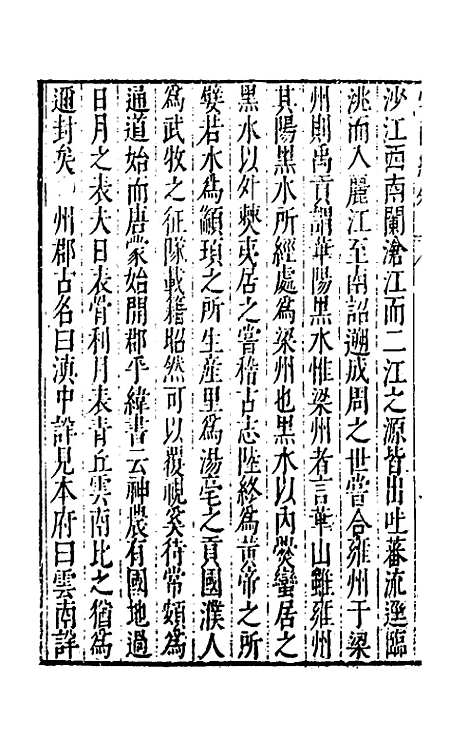 沙江西南闌滄江而二江之源皆出吐蕃流逕臨
洮而入麗江至南詔遡成周之世嘗合雍州于梁
州則禹貢謂華陽黑水惟梁州者言華山雖雍州
其陽黑水所經處為梁州也黑水以內僰蠻居之
黑水以外僰夷居之嘗稽古志陸終為黃帝之所
孌若水為顓頊之所生產里為湯亳之貢國濮人
為武牧之征隊載籍昭然可以覆視奚待常頞為
通道始而唐蒙始開郡乎緯書云神農有國地過
日月之表大日表骨利月表青丘雲南比之猶為
邇封矣 州郡古名曰滇中詳見本府曰雲南詳